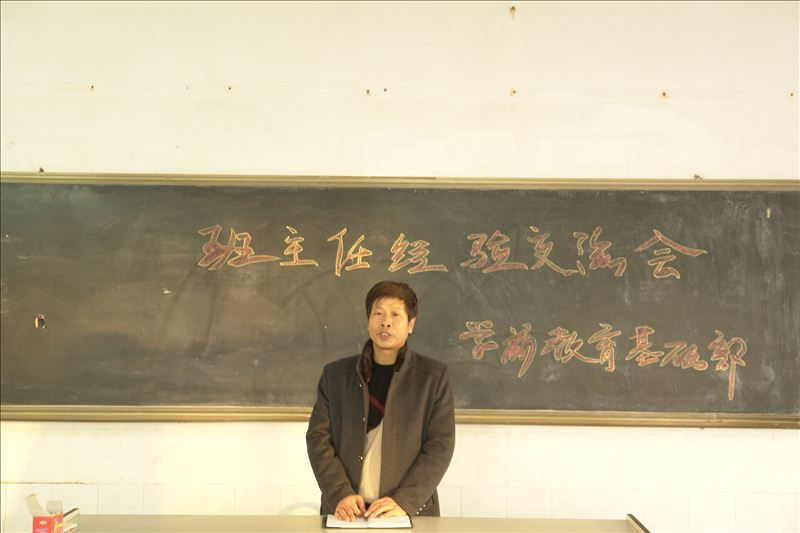 班主任经验交流会
学前教育基础部